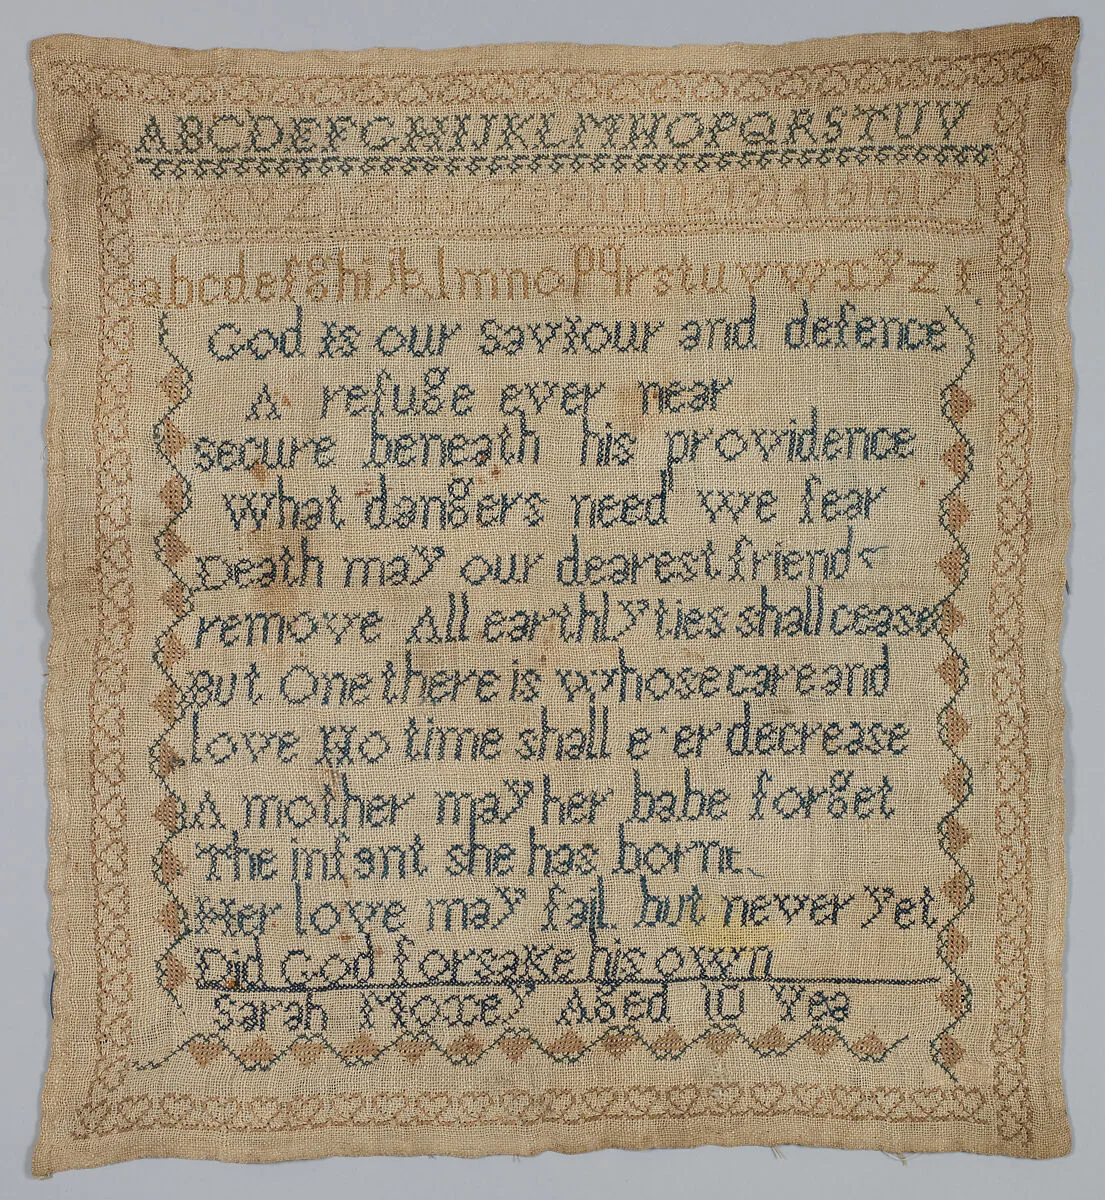 ABCDEFGHIJKLMNOPQRSTUV
WXYZ
abcdefghijklmnopqrstuvwxyz
God is our saviour and defence
A refuge ever near
secure beneath his providence
What dangers need we fear
Death may our dearest friends
remove All earthly ties shall cease
But One there is whose care and
love No time shall e'er decrease
A mother may her babe forget
The infant she has borne
Her love may fail but never yet
Did God forsake his own
Sarah Moxey Aged 10 Yea